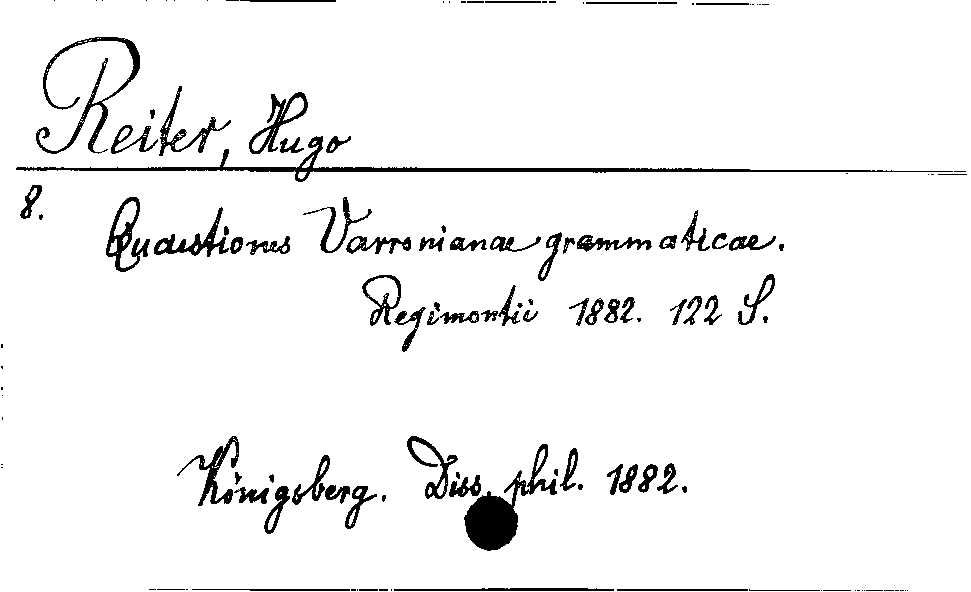 Reiter, Hugo
8.
Quaestiones Varronianae grammaticae.
Regimontii 1882. 122 S.
Königsberg. Diss. phil. 1882.